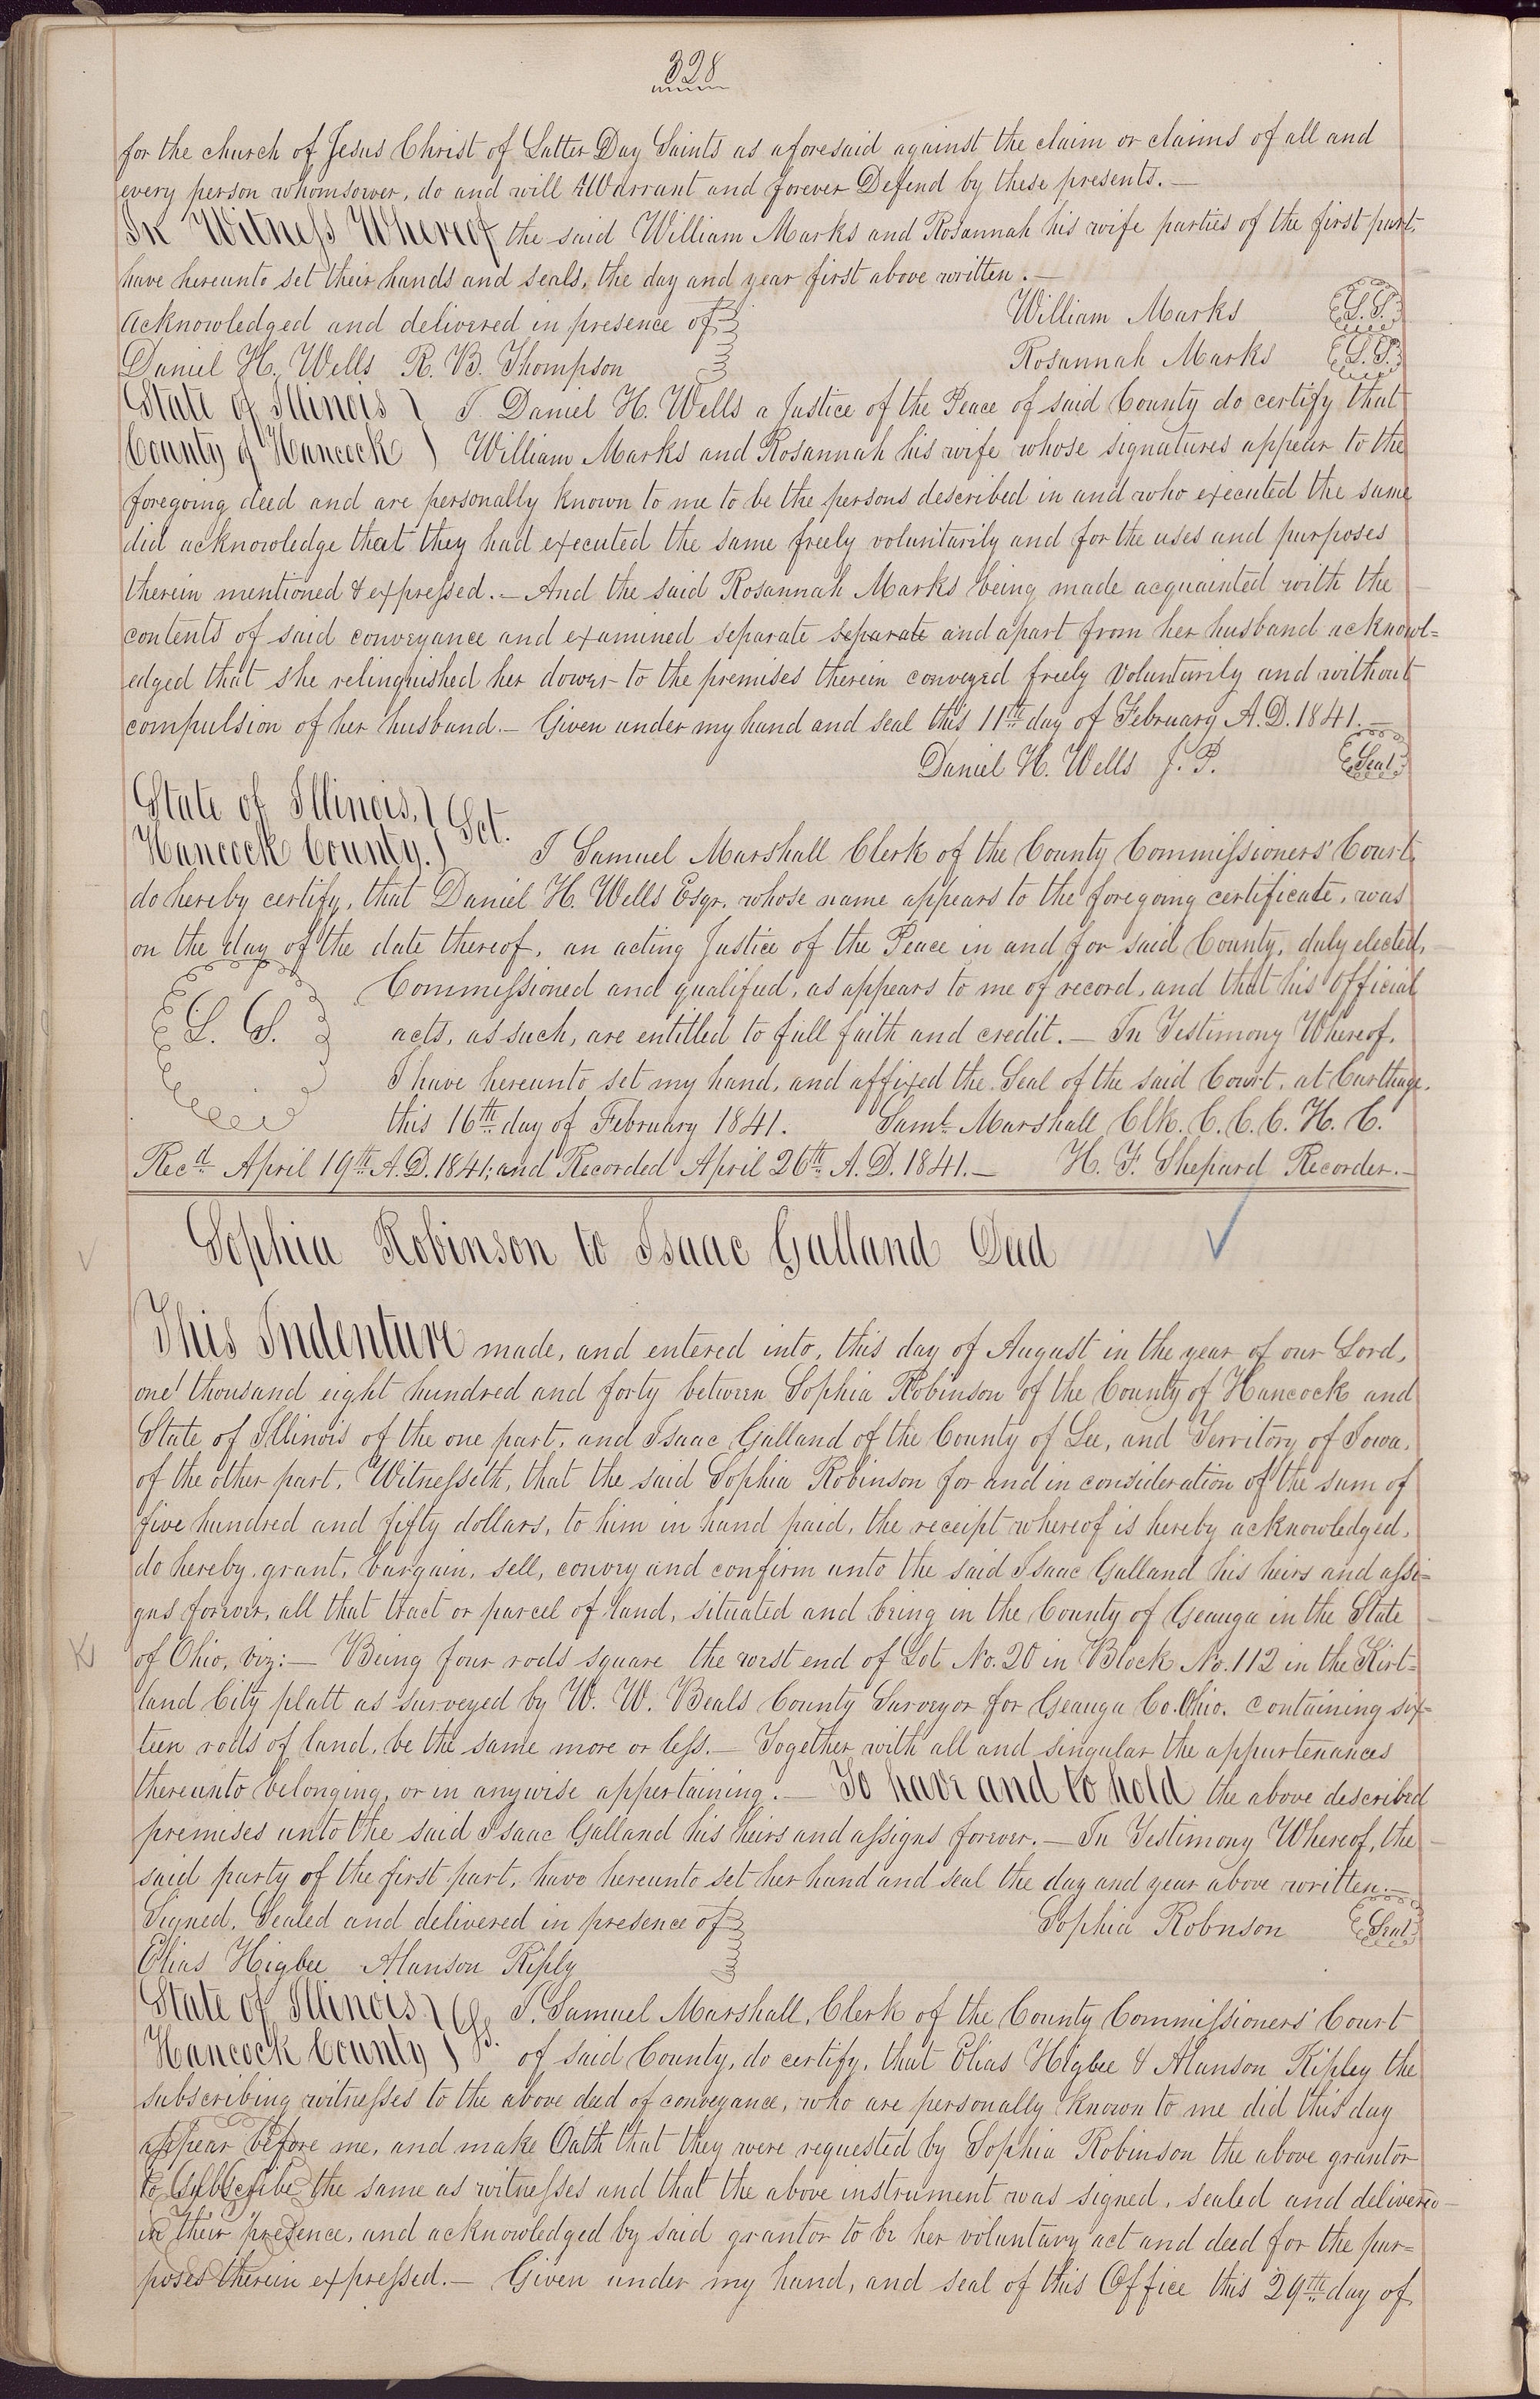 328
for the church of Jesus Christ of Latter Day Saints as aforesaid against the claim or claims of all and
every person whomsoever, do and will Warrant and forever Defend by these presents.—
In Witness Whereof the said William Marks and Rosannah his wife parties of the first part,
have hereunto set their hands and seals, the day and year first above written.—
Acknowledged and delivered in presence of William Marks L.S.
Daniel H. Wells R. B. Thompson Rosannah Marks L.S.
State of Illinois I. Daniel H. Wells a Justice of the Peace of said County do certify that
County of Hancock William Marks and Rosannah his wife whose signatures appear to the
foregoing deed and are personally known to me to be the persons described in and who executed the same
did acknowledge that they had executed the same freely voluntarily and for the uses and purposes
therein mentioned & expressed.— And the said Rosannah Marks being made acquainted with the
contents of said conveyance and examined separate separate and apart from her husband acknowl=
edged that she relinquished her dower to the premises therein conveyed freely voluntarily and without
compulsion of her husband.— Given under my hand and seal this 11th day of February A.D. 1841.—
Daniel H. Wells J. P. Seal
State of Illinois, Sct.
Hancock County. I Samuel Marshall Clerk of the County Commissioners' Court,
do hereby certify, that Daniel H. Wells Esqr. whose name appears to the foregoing certificate, was
on the day of the date thereof, an acting Justice of the Peace in and for said County, duly elected,
Commissioned and qualified, as appears to me of record, and that his official
L. S. acts, as such, are entitled to full faith and credit.— In Testimony Whereof,
I have hereunto set my hand, and affixed the Seal of the said Court, at Carthage,
this 16th day of February 1841. Saml. Marshall Clk. C. C. C. H. C.
Recd. April 19th A.D. 1841; and Recorded April 26th A.D. 1841.— H. F. Shepard Recorder.—
Sophia Robinson to Isaac Galland Deed
This Indenture made, and entered into, this day of August in the year of our Lord,
one thousand eight hundred and forty between Sophia Robinson of the County of Hancock and
State of Illinois of the one part, and Isaac Galland of the County of Lee, and Territory of Iowa,
of the other part, Witnesseth, that the said Sophia Robinson for and in consideration of the sum of
five hundred and fifty dollars, to him in hand paid, the receipt whereof is hereby acknowledged,
do hereby, grant, bargain, sell, convey and confirm unto the said Isaac Galland his heirs and assi=
gns forever, all that tract or parcel of land, situated and being in the County of Geauga in the State
of Ohio, viz:— Being four rods square the west end of Lot No. 20 in Block No. 112 in the Kirt=
land City platt as surveyed by W. W. Beals County Surveyor for Geauga Co. Ohio. containing six=
teen rods of land, be the same more or less.— Together with all and singular the appurtenances
thereunto belonging, or in anywise appertaining.— To have and to hold the above described
premises unto the said Isaac Galland his heirs and assigns forever.— In Testimony Whereof, the
said party of the first part, have hereunto set her hand and seal the day and year above written.—
Signed, Sealed and delivered in presence of Sophia Robnson Seal
Elias Higbee Alanson Riply
State of Illinois Ss. I. Samuel Marshall, Clerk of the County Commissioners' Court
Hancock County of said County, do certify, that Elias Higbee & Alanson Ripley the
subscribing witnesses to the above deed of conveyance, who are personally known to me did this day
appear before me, and make Oath that they were requested by Sophia Robinson the above grantor
to subscribe the same as witnesses and that the above instrument was signed, sealed and delivered
in their presence, and acknowledged by said grantor to be her voluntary act and deed for the pur=
poses therein expressed.— Given under my hand, and seal of this Office this 29th day of